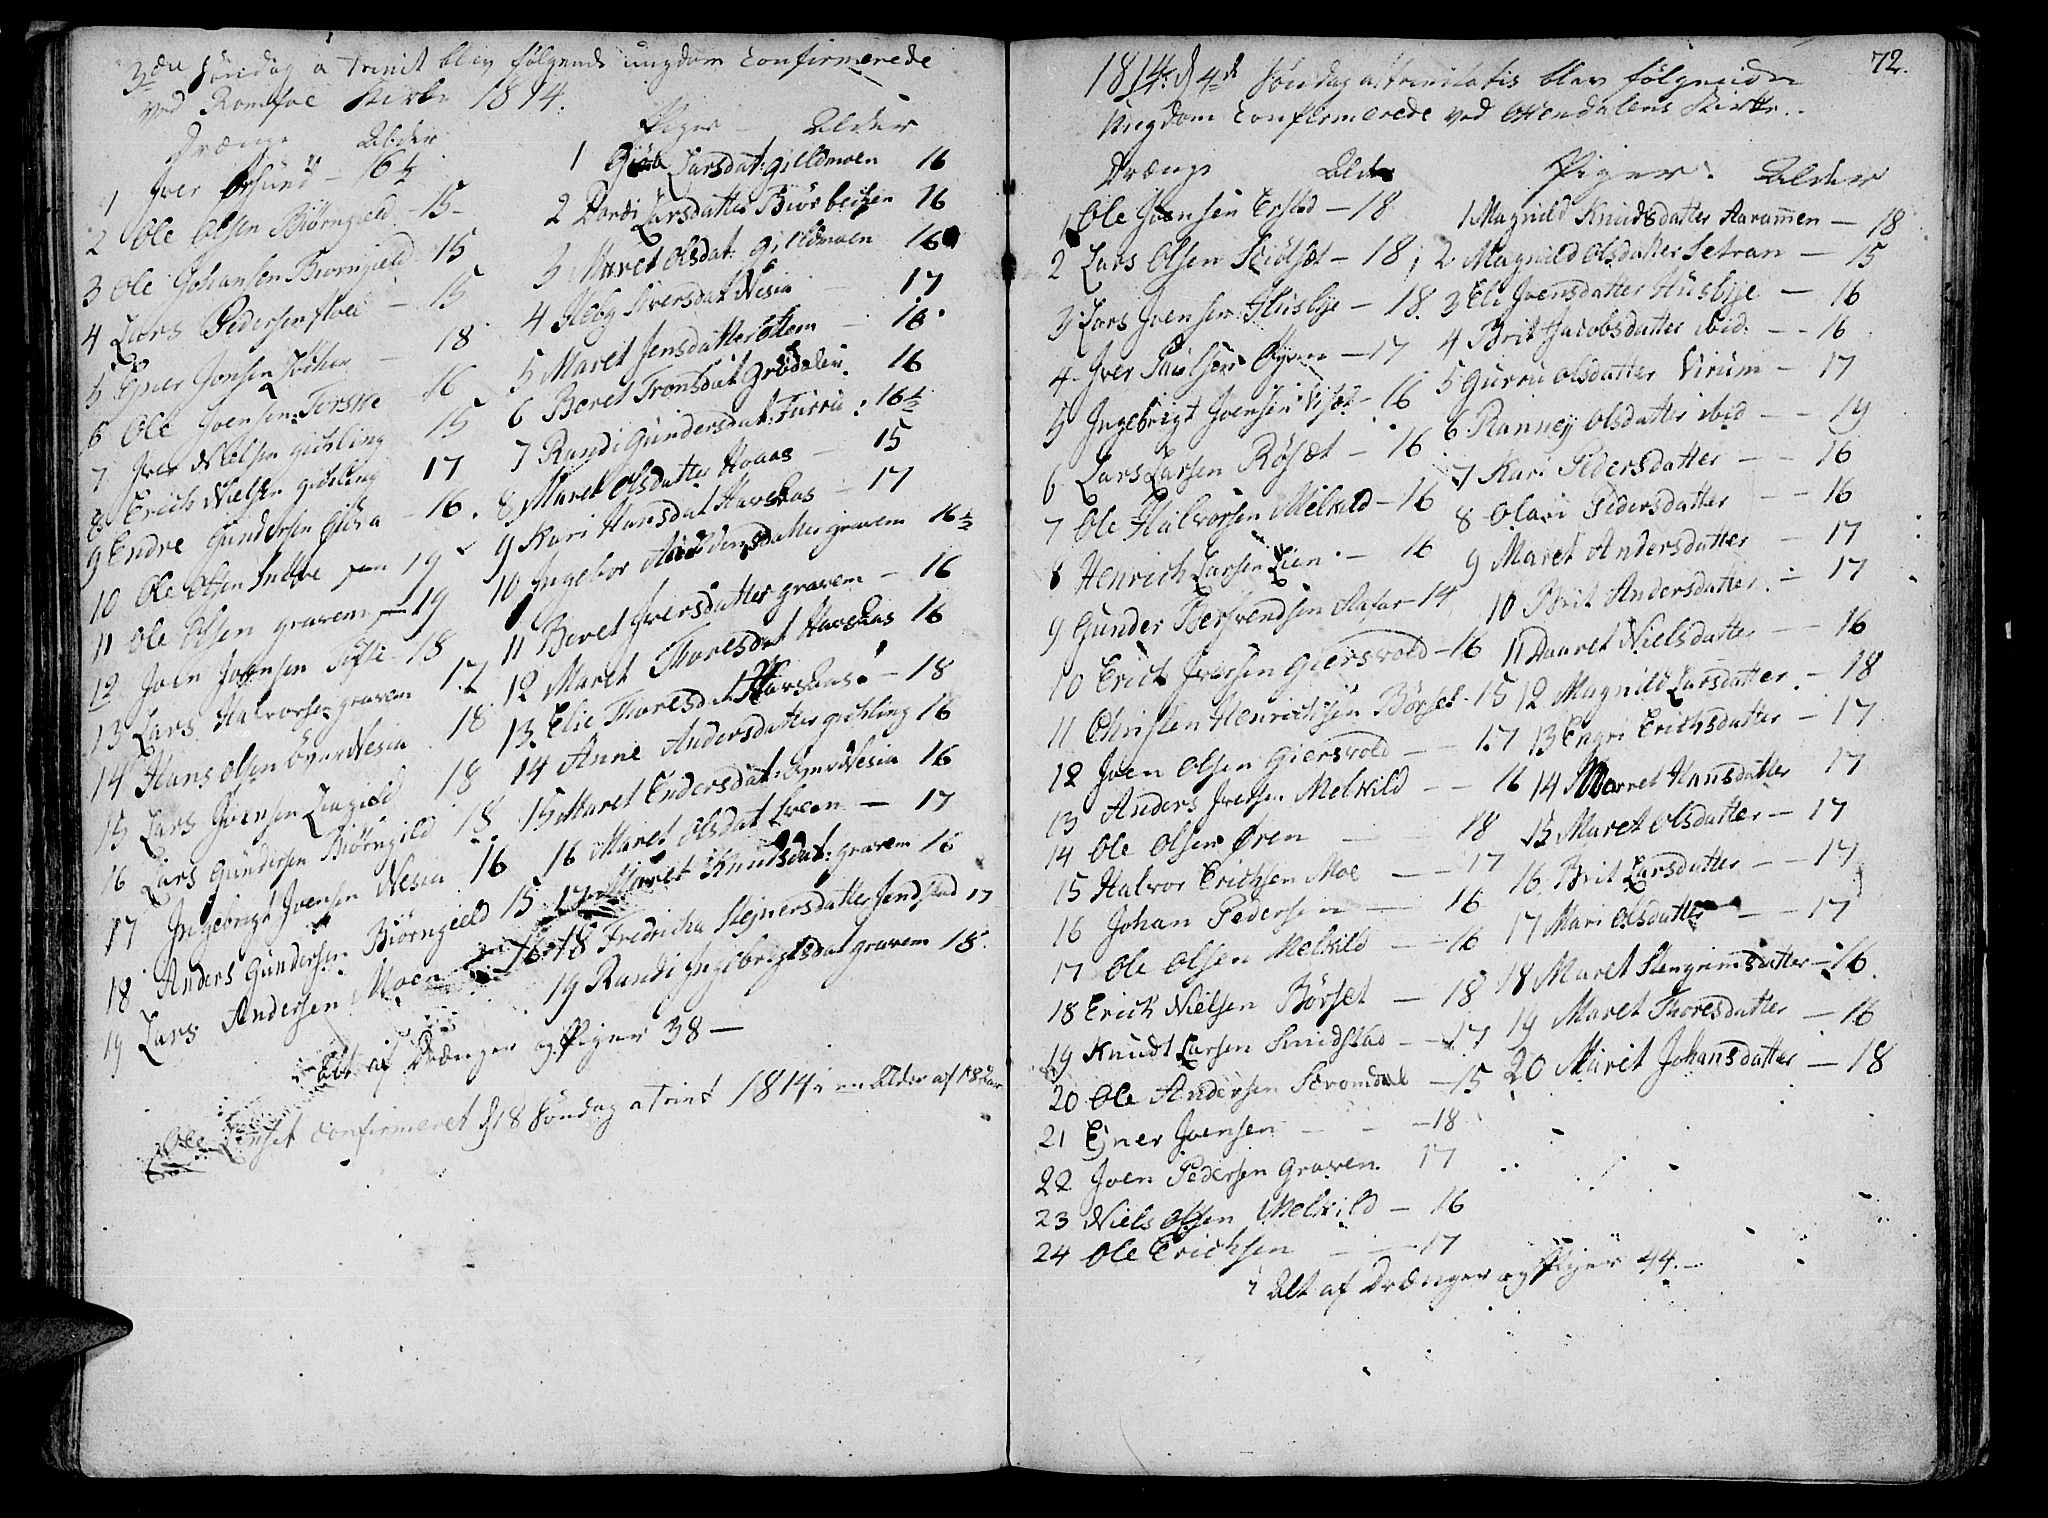 3die Søndag a Trinit blev følgende ungdom Confirmerede
ved Romfoe Kirke 1814.
Drænge Alder
1 Iver 16½
2 Ole Olsen Biørngield - 15 -
3 Ole Johansen Biørngield - 15
4 Lars Pedersen - 15
5 Ejner Jonsen - 18
6 Ole Joensen Torske 16
7 Iver Nielsen gichling 15
8 Erich Nielsen gichling 17
9 Endre Gundersen Giöra - 16.
10 Ole Olsen 19
11 Ole Olsen gravem 19
12 Joen Joensen Tofte - 18
13 Lars Halvorsen gravem 17
14 Hans Olsen Nesia 18
15 Lars Joensen 18
16 Lars Gundersen Biörngild 18
17 Ingebrigt Joensen Nesia 16
18 Anders Gundersen Biörngield 15
19 Lars Andersen Moen 16
Piger - Alder
1 Larsdat: gilldmoen 16
2 Dordi Larsdatter 16
3 Maret Olsdat: gilldmoen 16
4 Iversdat Nesia 17
5 Maret Jensdatter Ottem - 16.
6 Beret Tronsdat Grödalen. 16
7 Randi Gundersdat: Furru: 16½
8 Maret Olsdatter Hoaas - 15
9 Kari Hansdat Havsaas - 17
10 Ingebor gravem 16½
11 Beret Iversdatter gravem - 16
12 Maret Thoresdat Havsaas 16
13 Elie Thoresdat Havsaas. - 18
14 Anne Andersdatter gichling 16
15 Maret Endersdat: Nesia 16
16 Maret Olsdat Loen - 17
17 Maret Knudsdat: gravem 16
18 Fredricha Stejnersdatter Jendstad 17
19 Randi Ingebrigtsdat gravem 15.
i Alt af Drænger og Piger 38 -
Ole confirmeret d 18 Søndag a Trint 1814 i en Alder af 18½ aar
72.
1814. d 4de Søndag a: trinitatis blev følgende
Ungdom Confirmerede ved Ottendalens Kirke.
Drænge Alder
1 Ole Joensen Erstad - 18
2 Lars Olsen - 18
3 Lars Joensen Husbye - 18.
4 Iver Paulsen - 17
5 Ingebrigt Joensen - 16
6 Lars Larsen Rösæt - 16
7 Ole Halvorsen Melkild - 16
8 Henrich Larsen Lien. - 16
9 Gunder - 14
10 Erich Iversen Giersvold - 16
11 Christen Henrichsen Börset - 15
12 Joen Olsen Giersvold - - 17
13 Anders Iversen Melkild - - 16
14 Ole Olsen Øren - - 18
15 Halvor Erichsen Moe - - 17
16 Johan Pedersen - 16
17 Ole Olsen Melkild - - 16
18 Erich Nielsen Börset - 18
19 Knudt Larsen - 17
20 Ole Andersen - 15
21 Ejner Joensen - - - 18
22 Joen Pedersen Graven. 17
23 Niels Olsen Melkild - 16
24 Ole Erichsen - - 17
Piger. Alder
1 Magnild Knudsdatter Aarammen - 18
2 Magnild Olsdatter Setran - 15
3 Eli Joensdatter Husbye - 16
4 Brit Jacobsdatter ibid. - - 16
5 Gurru Olsdatter Virum - 17
6 Ranney Olsdatter ibid - - 19
7 Kari Pedersdatter - - 16
8 Olari Pedersdatter - - 16
9 Maret Andersdatter - 17
10 Brit Andersdatter. - 17
11 Maret Nielsdatter - - 16
12 Magnild Larsdatter. - 18
13 Engri Erichsdatter - 17
14 Marret Hansdatter 17
15 Maret Olsdatter - 17
16 Brit Larsdatter - - 17
17 Mari Olsdatter - - 17
18 Maret Stengrimsdatter - 16.
19 Maret Thoresdatter - 16
20 Maret Johansdatter - 18
i Alt af Drænger og Piger 44. -